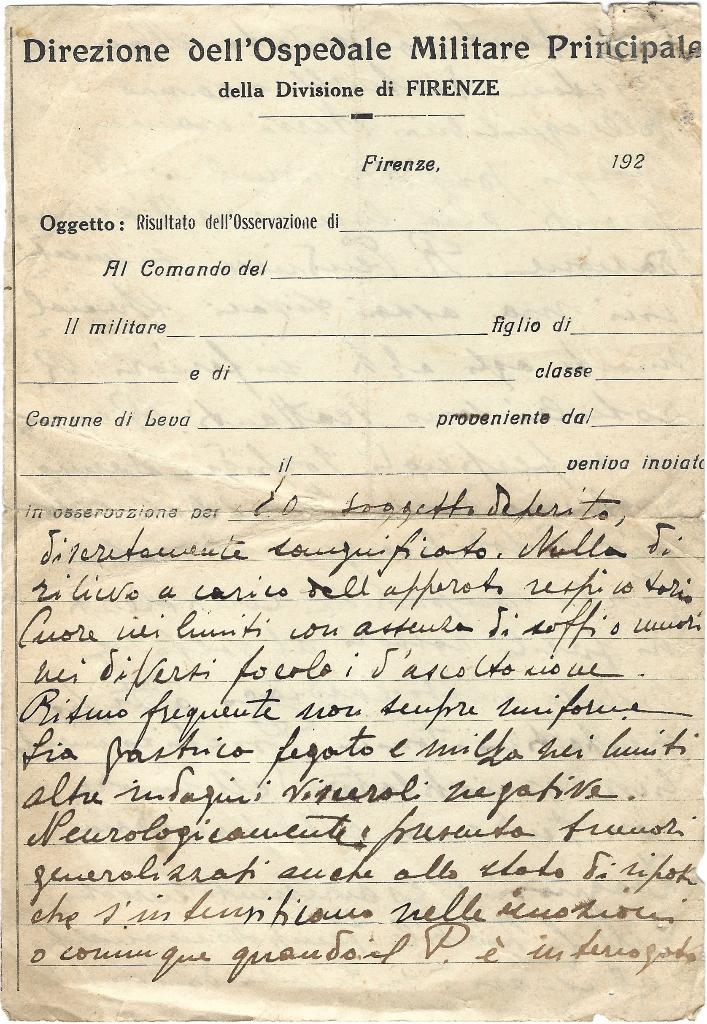 Direzione dell'Ospedale Militare Principale
della Divisione di FIRENZE
Firenze, 192
Oggetto: Risultato dell'Osservazione di
Al Comando del
Il militare figlio di
e di classe
Comune di Leva proveniente dal
il veniva inviato
in osservazione per soggetto deperito,
discretamente sanguificato. Nulla di
rilievo a carico dell'apparato respiratorio
Cuore nei limiti con assenza di soffi o rumori
nei diversi focolai d'ascoltazione.
Ritmo frequente non sempre uniforme
gastrica fegato e milza nei limiti
altre indagini viscerali negative.
Neurologicamente: presenta tremori
generalizzati anche allo stato di riposo
che s'intensificano nelle emozioni
o comunque quando il P. è interrogato